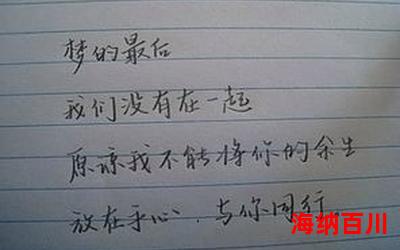 梦的最后
我们没有在一起
原谅我不能将你的余生
放在手心、与你同行
海纳百川